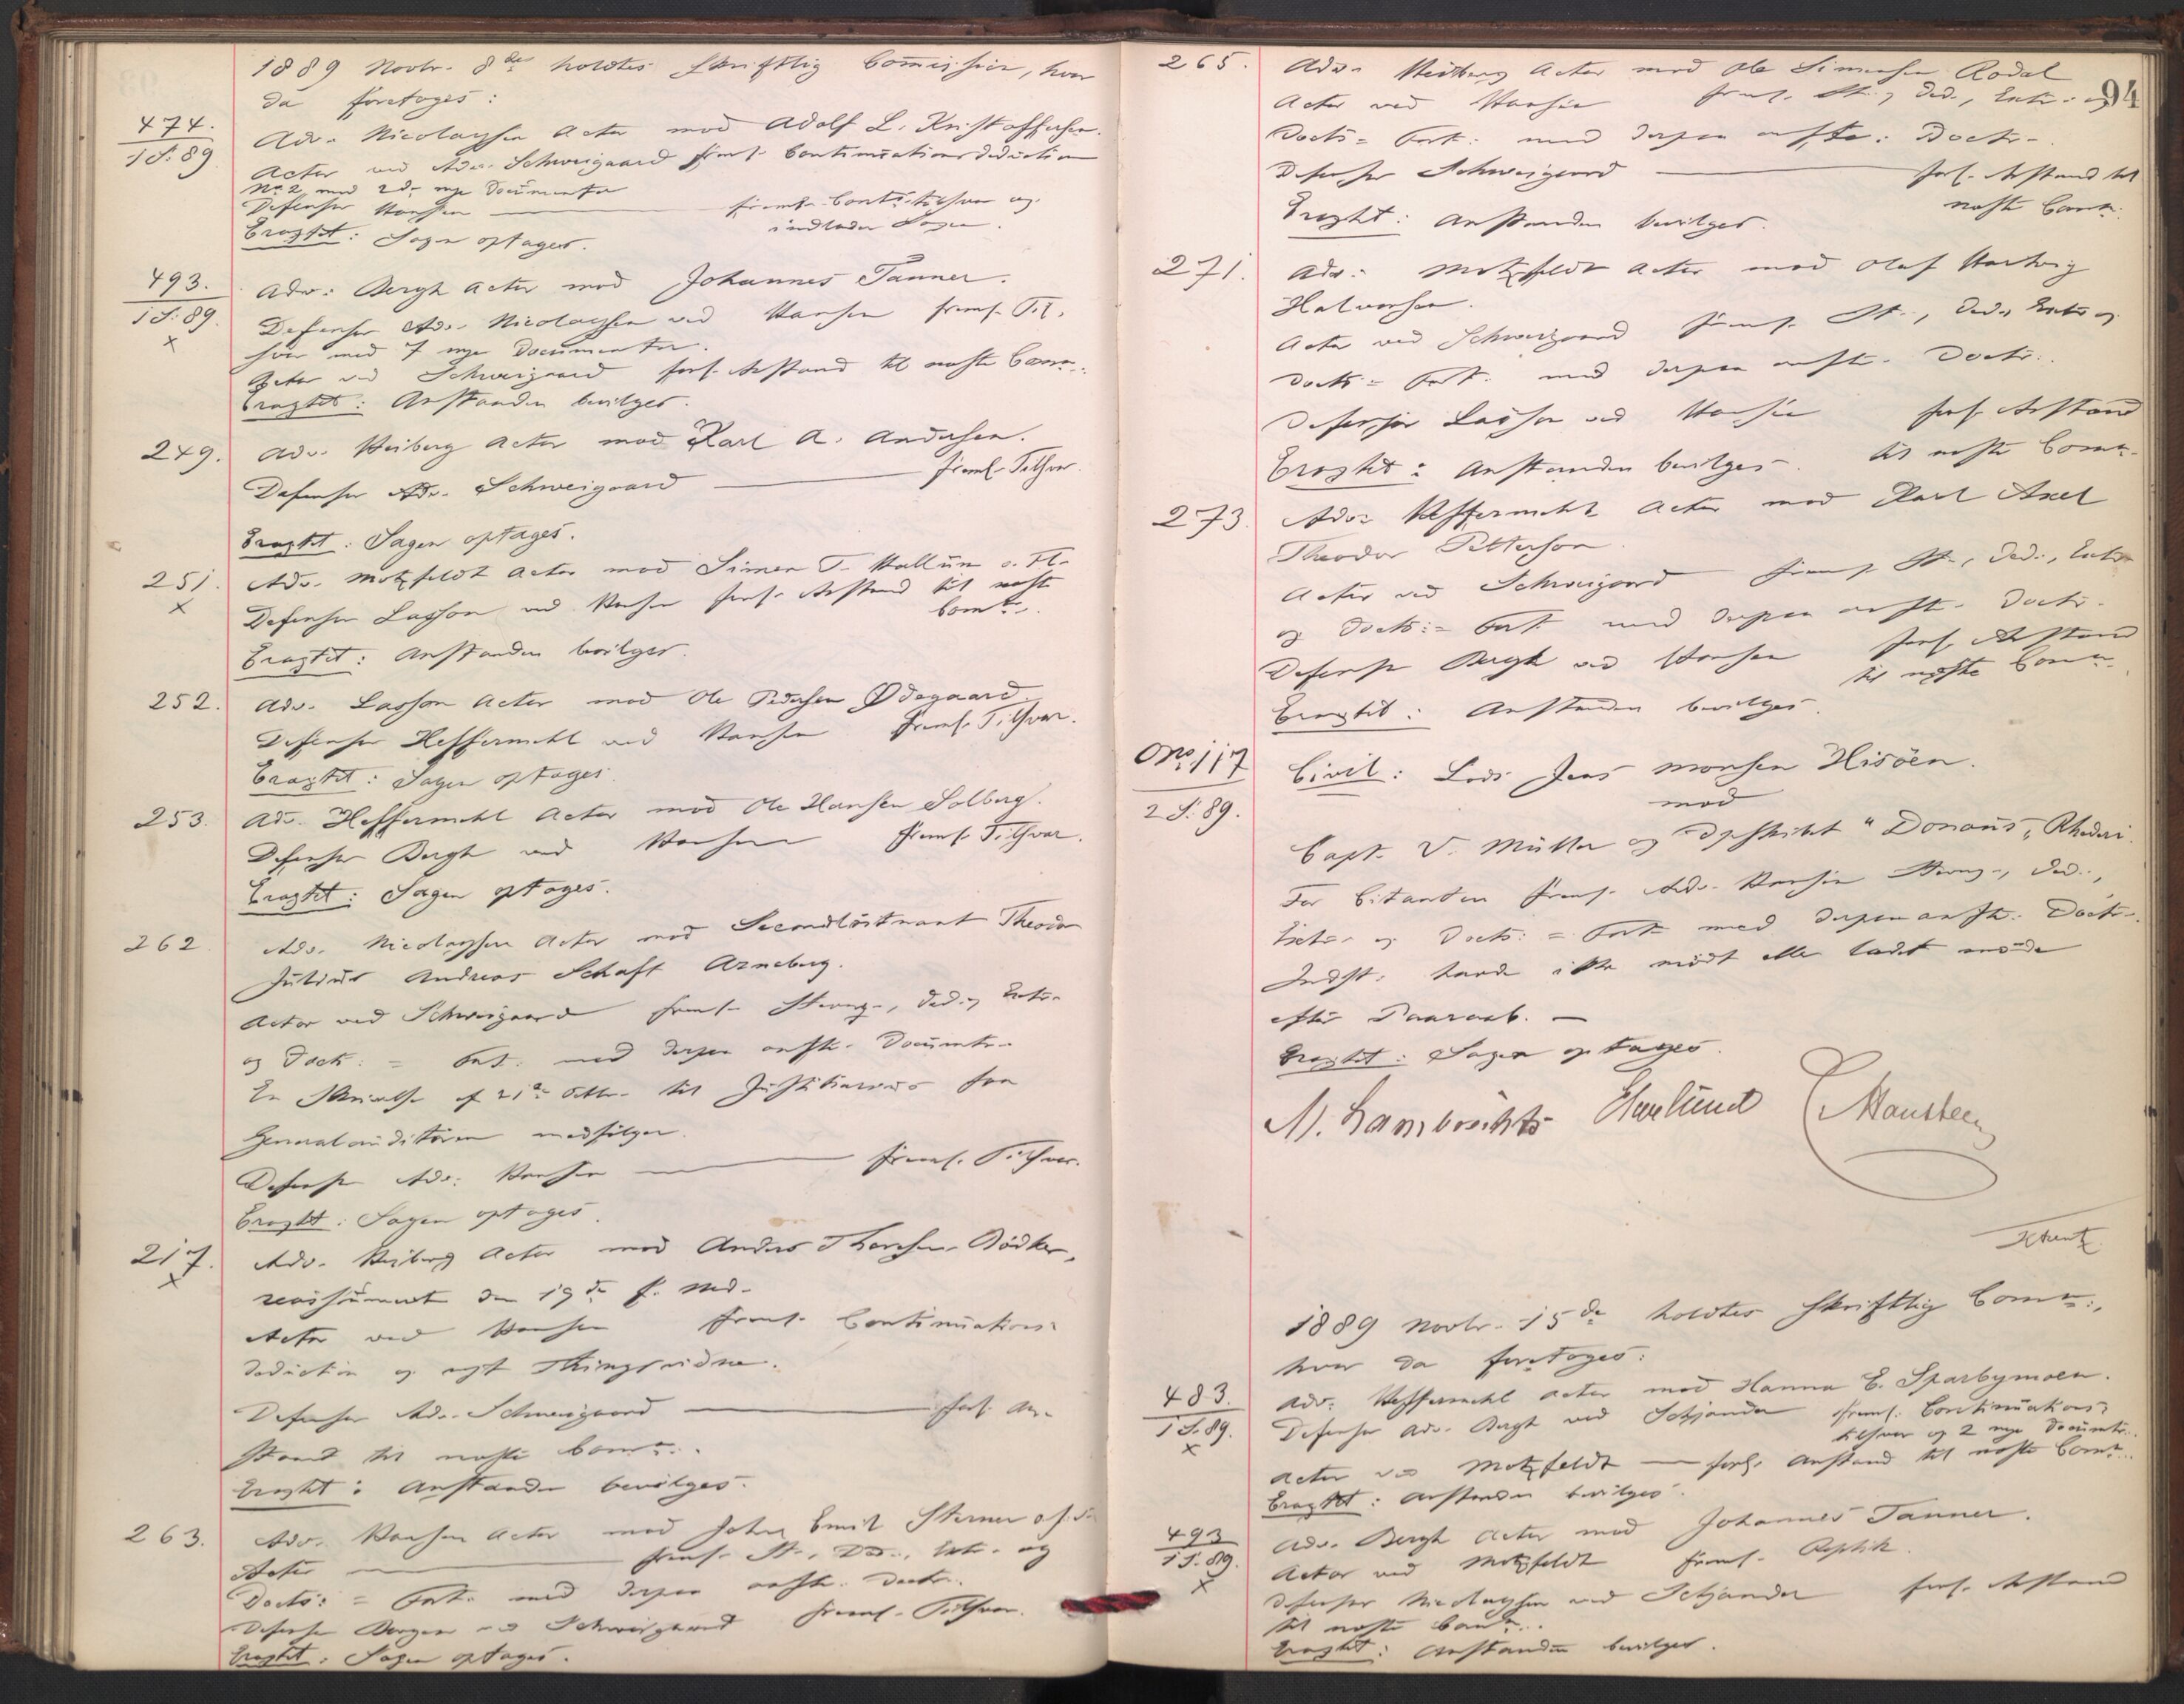 1889 Novbr. 8de holdtes skriftlig Commission, hvor
da foretoges:
474.
1 S. 89
Adv. Nicolaysen Actor mod Adolf L. Kristoffersen.
Actor ved Adv. Schweigaard freml. Continuationsdeduction
No 2 med 2de nye Documenter
Defensor Hansen freml. Conts. tilsvar og
indlader Sagen.
Eragtet: Sagen optages.
493.
1 S. 89.
x
Adv: Bergh Actor mod Johannes Tanner.
Defensor Adv. Nicolaysen ved Hansen freml. Til-
svar med 7 nye Documenter.
Actor ved Schweigaard forl. Anstand til næste Comm.
Eragtet: Anstanden bevilges.
249.
Adv. Heiberg Actor mod Karl A. Andersen.
Defensor Adv. Schweigaard freml. Tilsvar.
Eragtet: Sagen optages.
251.
x
Adv. Motzfeldt Actor mod Simen T. Hallum o. Fl.
Defensor Lasson ved Hansen forl. Anstand til næste
Comm.
Eragtet: Anstanden bevilges.
252.
Adv. Lasson Actor mod Ole Pedersen Ødegaard.
Defensor Heffermehl ved Hansen freml. Tilsvar.
Eragtet: Sagen optages.
253.
Adv. Heffermehl Actor mod Ole Hansen Solberg.
Defensor Bergh ved Hansen freml. Tilsvar.
Eragtet: Sagen optages.
262.
Adv. Nicolaysen Actor mod Secondløitnant Theodor
Julius Andreas Schaft Arneberg.
Actor ved Schweigaard freml. Stevng., Ded. Extr.
og Doct: = Fort. med derpaa anførte Documtr.
En Skrivelse af 21de Octbr. til Justitiarius fra
Generalauditøren medfølger.
Defensor Adv. Hansen freml. Tilsvar.
Eragtet: Sagen optages.
217.
x
Adv. Heiberg Actor mod Anders Thoresen Bødker,
reassumeret den 19de f. Md.
Actor ved Hansen freml. Continuations-
deduction og nyt Thingsvidne.
Defensor Adv. Schweigaard forl. An-
stand til næste Comm.
Eragtet: Anstanden bevilges.
263.
Adv. Hansen Actor mod Johan Emil Sterner
Actor freml. St., Ded., Extr. og
Docts: = Fort. med derpaa anførte Doctr.
Defensor ved Schweigaard freml. Tilsvar.
Eragtet: Sagen optages.
94
265.
Adv. Heiberg Actor mod Ole Simensen Rodal
Actor ved Hansen freml. St., Ded., Extr. og
Docts = Fort: med derpaa anførte: Doctr.
Defensor Schweigaard forl. Anstand til
næste Comm.
Eragtet: Anstanden bevilges.
271.
Adv. Motzfeldt Actor mod Olaf Hartvig
Halvorsen.
Actor ved Schweigaard freml. St., Ded. Extr. og
Docts = Fort. med derpaa anførte Doctr.
Defensor Lasson ved Hansen forl. Anstand
til næste Comm.
Eragtet: Anstanden bevilges.
273.
Adv. Heffermehl Actor mod Karl Axel
Theodor Petterson.
Actor ved Schweigaard freml. St., Ded., Extr.
og Docts: = Fort. med derpaa anførte Doctr.
Defensor Bergh ved Hansen forl. Anstand
til næste Comm.
Eragtet: Anstanden bevilges.
No. 117
2 S. 89.
Civil: Lods Jens Monsen Hisöen.
mod
Capt. V. Müller og Dpskibet "Donaus" Rhederi.
For Citanten freml. Adv. Hansen Stevng., Ded.,
Extr. og Docts: = Fort. med derpaa anførte Doctr.
Indst. havde ikke mødt eller ladet møde
efter Paaraab. –
Eragtet: Sagen optages.
M. Lambrechts Hansteen
1889 Novbr. 15de holdtes skriftlig Comm.,
hvor da foretoges:
483.
1 S. 89.
x
Adv. Heffermehl Actor mod Hanna E. Sparbymoen.
Defensor Adv. Bergh ved Schjander freml. Continuations-
tilsvar og 2 nye Documtr.
Actor ved Motzfeldt — forl. Anstand til næste Comm.
Eragtet: Anstanden bevilges.
493
1 S. 89.
x
Adv. Bergh Actor mod Johannes Tanner.
Actor ved Motzfeldt freml. Replik.
Defensor Nicolaysen ved Schjander forl. Anstand
til næste Comm.
Eragtet: Anstanden bevilges.